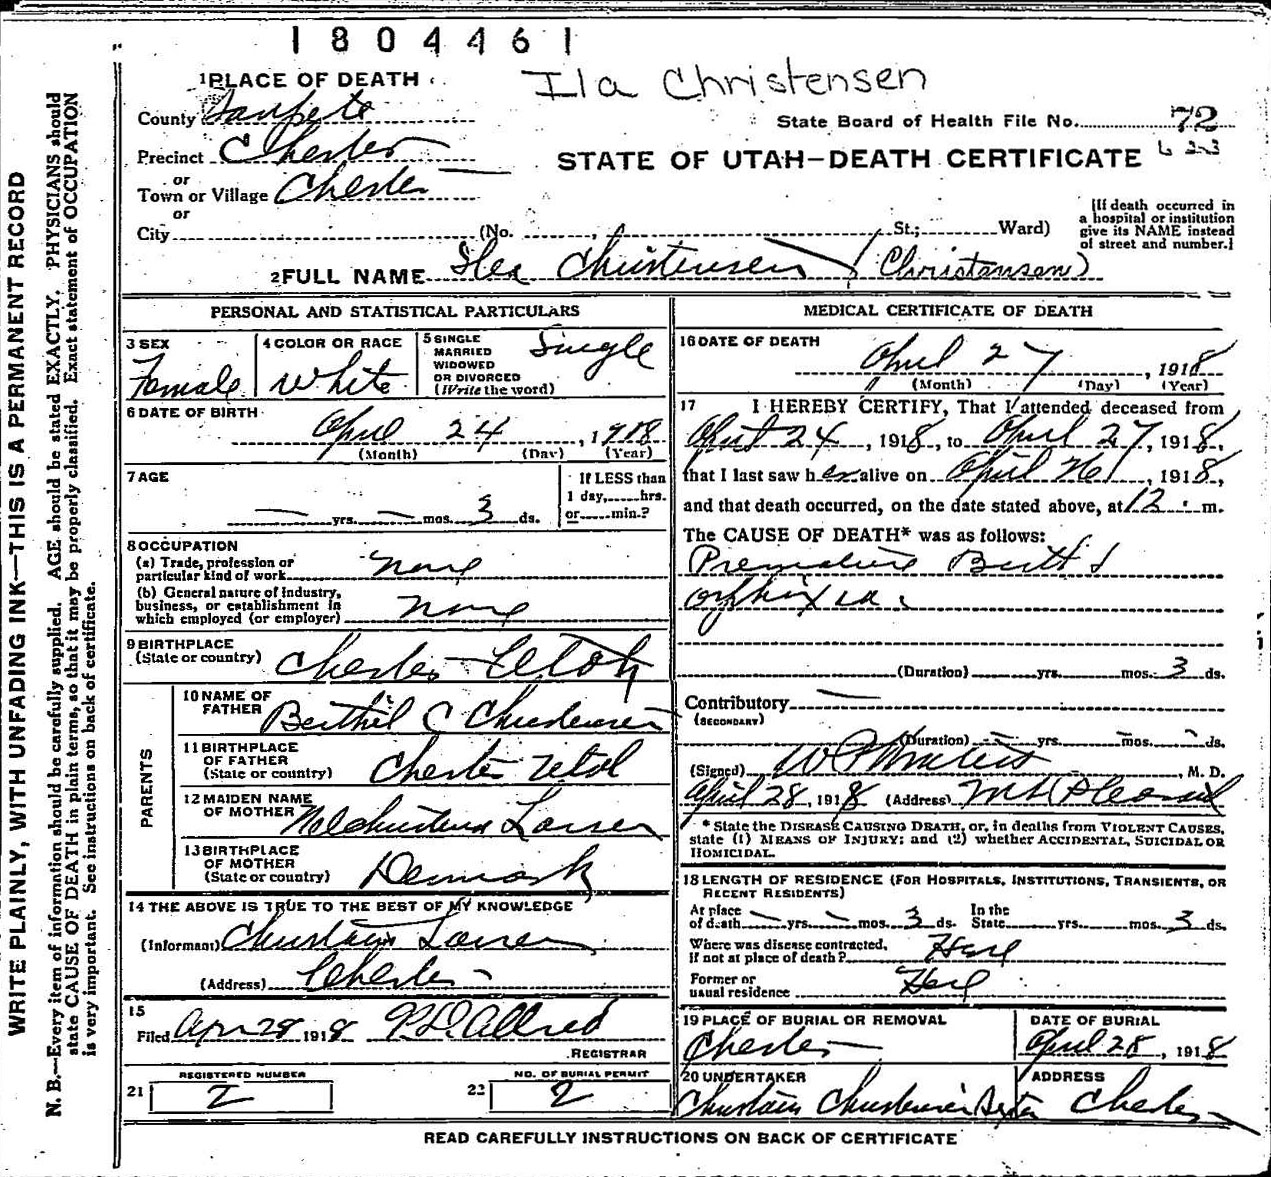 1804461
Ila Christensen
1 PLACE OF DEATH
County Sanpete
State Board of Health File No. 72
Precinct Chester
STATE OF UTAH—DEATH CERTIFICATE
or
Town or Village Chester
or
City (No. , St.; Ward)
[If death occurred in
a hospital or institution
give its NAME instead
of street and number.]
2 FULL NAME Ila Christensen (Christensen)
PERSONAL AND STATISTICAL PARTICULARS
3 SEX
Female
4 COLOR OR RACE
White
5 SINGLE
MARRIED
WIDOWED
OR DIVORCED
(Write the word)
Single
6 DATE OF BIRTH
April 24, 1918
(Month) (Day) (Year)
7 AGE
— yrs. — mos. 3 ds.
If LESS than
1 day, hrs.
or min.?
8 OCCUPATION
(a) Trade, profession or
particular kind of work none
(b) General nature of industry,
business, or establishment in
which employed (or employer) none
9 BIRTHPLACE
(State or country) Chester Utah
PARENTS
10 NAME OF
FATHER Berthil C Christensen
11 BIRTHPLACE
OF FATHER
(State or country) Chester Utah
12 MAIDEN NAME
OF MOTHER Larsen
13 BIRTHPLACE
OF MOTHER
(State or country) Denmark
14 THE ABOVE IS TRUE TO THE BEST OF MY KNOWLEDGE
(Informant) Larsen
(Address) Chester
15
Filed Apr 28 1918 P D Allred
REGISTRAR
21 REGISTERED NUMBER
2
22 NO. OF BURIAL PERMIT
2
MEDICAL CERTIFICATE OF DEATH
16 DATE OF DEATH
April 27, 1918
(Month) (Day) (Year)
17 I HEREBY CERTIFY, That I attended deceased from
April 24, 1918, to April 27, 1918,
that I last saw her alive on April 26, 1918,
and that death occurred, on the date stated above, at 12 m.
The CAUSE OF DEATH* was as follows:
Premature Birth
(Duration) yrs. mos. 3 ds.
Contributory —
(SECONDARY)
(Duration) — yrs. — mos. — ds.
(Signed) M. D.
April 28, 1918 (Address) Mt Pleasant
* State the DISEASE CAUSING DEATH, or, in deaths from VIOLENT CAUSES,
state (1) MEANS OF INJURY; and (2) whether ACCIDENTAL, SUICIDAL OR
HOMICIDAL.
18 LENGTH OF RESIDENCE (FOR HOSPITALS, INSTITUTIONS, TRANSIENTS, OR
RECENT RESIDENTS)
At place
of death — yrs. — mos. 3 ds.
In the
State yrs. mos. 3 ds.
Where was disease contracted,
If not at place of death?
Former or
usual residence
19 PLACE OF BURIAL OR REMOVAL
Chester
DATE OF BURIAL
April 28, 1918
20 UNDERTAKER
Christensen
ADDRESS
Chester
READ CAREFULLY INSTRUCTIONS ON BACK OF CERTIFICATE
WRITE PLAINLY, WITH UNFADING INK—THIS IS A PERMANENT RECORD
N. B.—Every item of information should be carefully supplied. AGE should be stated EXACTLY. PHYSICIANS should
state CAUSE OF DEATH in plain terms, so that it may be properly classified. Exact statement of OCCUPATION
is very important. See instructions on back of certificate.